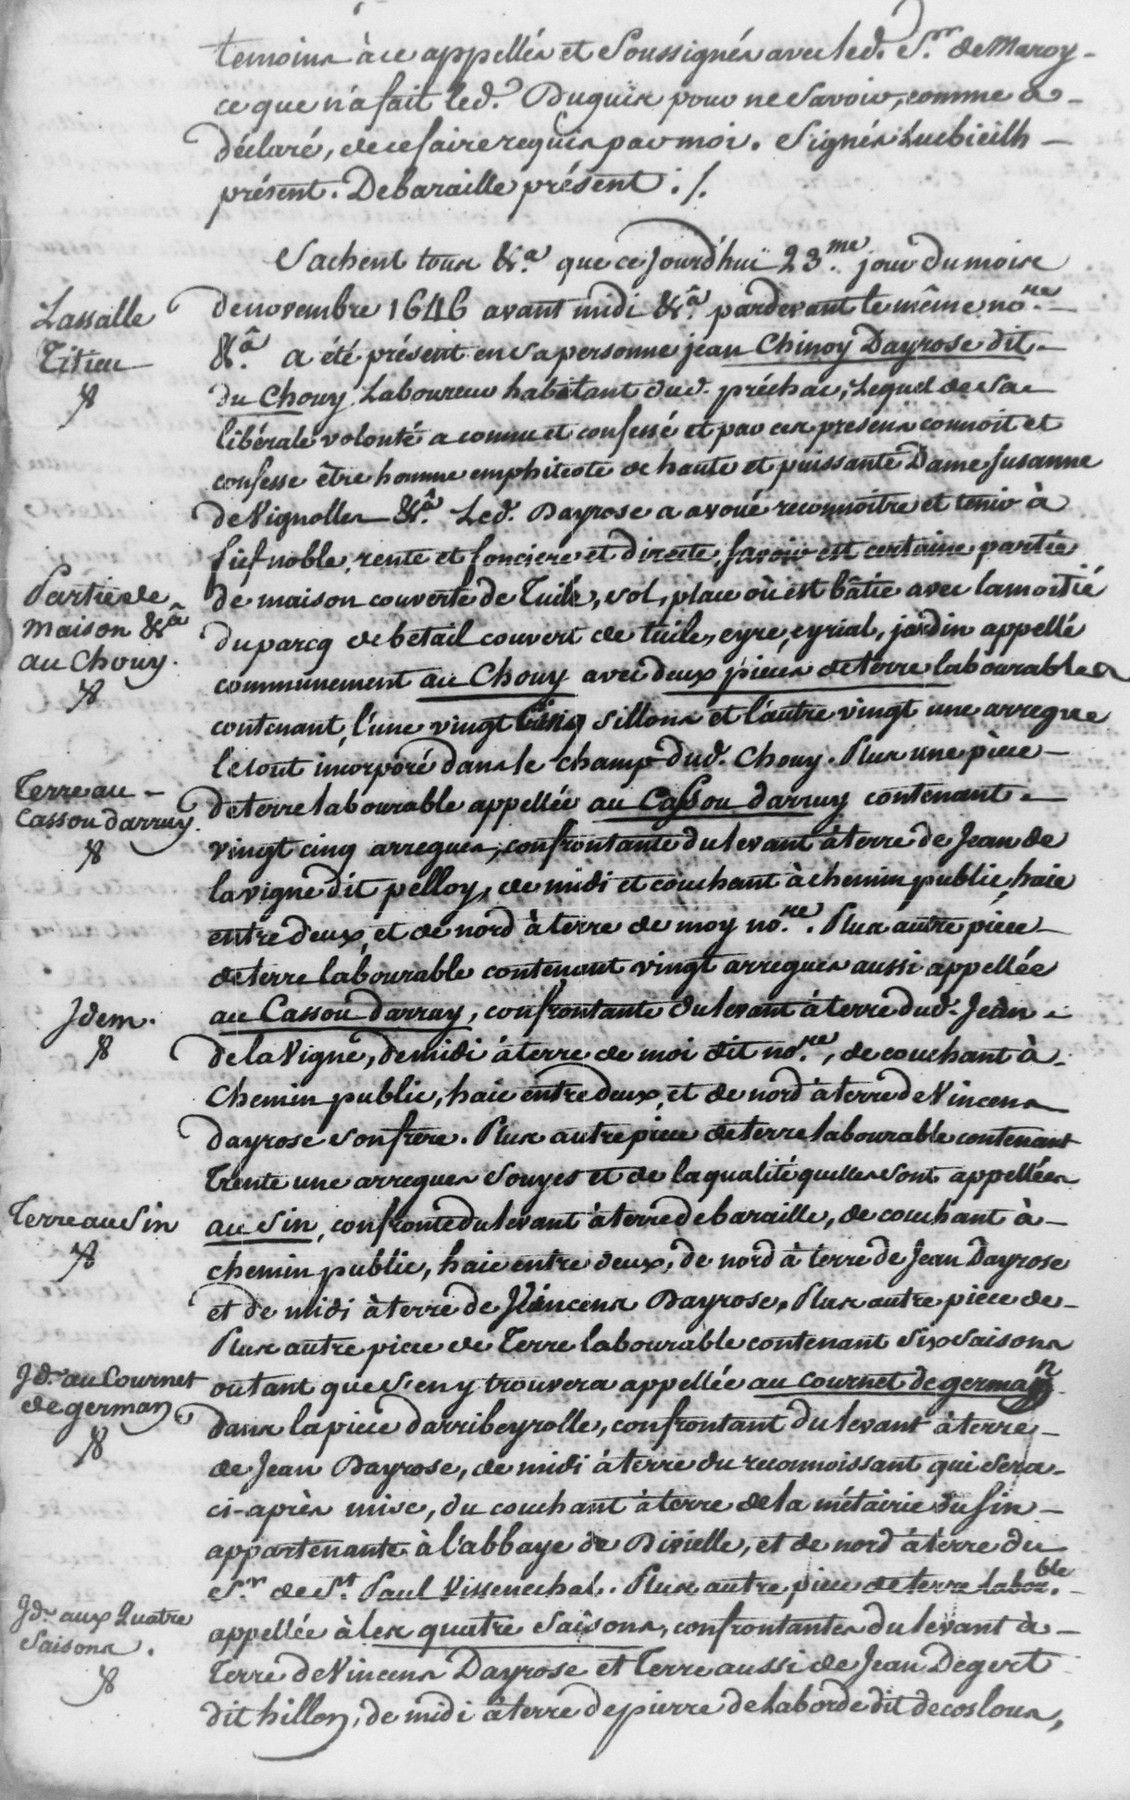 temoins à ce appellés et soussignés avec led. Sr. de Maroy -
ce que n'a fait led. Duguis pour ne savoir, comme a -
déclaré, de ce faire requis par moi. Signés Lucbieilh -
présent. Debaraille présent ./.
Sachent tous &a. que ce jourd'hui 23.me jour du mois
Lassalle
Titieu
de novembre 1646 avant midi &a. pardevant le même no.re -
&a a été présent en sa personne jean Chinoy Dayrose dit -
du Chouy Laboureur habitant dud. préchac, Lequel de sa -
libérale volonté a connu et confessé et par ces presens connoit et
confesse être homme emphiteote de haute et puissante Dame Susanne
de Vignolles &a. Led. Dayrose a avoué reconnoitre et tenir à
fief noble, rente et fonciere et directe, savoir est certaine partie
Partie de
Maison &a
au Chouy.
de maison couverte de Tuile, sol, place où est bâtie avec la moitié
du parcq de betail couvert de tuile, eyre, eyrial, jardin appellé
communement au Chouy avec deux pièces de terre labourables
contenant, l'une vingt cinq sillons et l'autre vingt une arregue
le tout incorporé dans le champ dud. Chouy. Plus une pièce -
Terre au -
Cassou darruy.
de terre labourable appellée au Cassou darruy contenant -
vingt cinq arregues, confrontante du levant à terre de Jean de
lavigne dit pelloy, de midi et couchant à chemin public, haie
entre deux, et de nord à terre de moy no.re. Plus autre pièce -
de terre labourable contenant vingt arregues aussi appellée
Idem.
au Cassou darruy, confrontante du levant à terre dud. Jean -
de la Vigne, de midi à terre de moi dit no.re, de couchant à -
Chemin public, haie entre deux, et de nord à terre de Vincens
dayrose son frere. Plus autre piece de terre labourable contenant
Trente une arregues souyes et de la qualité quelles sont appellées
Terre au Sin
au Sin, confronte du levant à terre debaraille, de couchant à -
chemin public, haie entre deux, de nord à terre de Jean Dayrose
et de midi à terre de Vincens Dayrose. Plus autre pièce de -
Plus autre piece de Terre labourable contenant six saisons
Id. au Cournet
de german.
ou tant que s'en y trouvera appellée au cournet de german
dans la piece darribeyrolle, confrontant du levant à terre -
de Jean Dayrose, de midi à terre du reconnoissant qui sera -
ci-après mise, du couchant à terre de la métairie du Sin -
appartenante à l'abbaye de Divielle, et de nord à terre du
Sr. de St. Paul Vissenechal. Plus autre piece de terre labor.ble -
Id. aux Quatre
Saisons.
appellée à les quatre saisons, confrontantes du levant à -
Terre de Vincens Dayrose et terre aussi de Jean Degert
dit hillon, de midi à terre de pierre de Laborde dit decoslous,